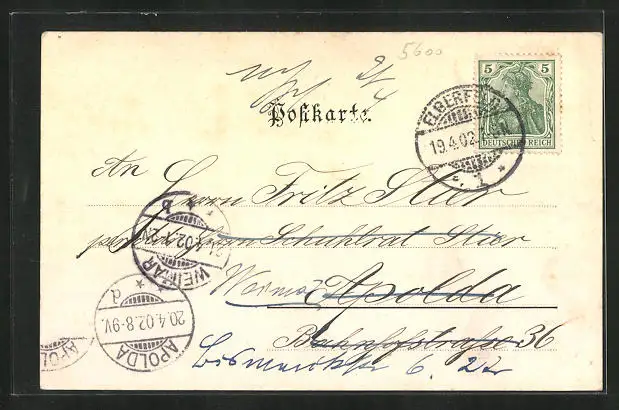 5600
Postkarte.
5
5
DEUTSCHES REICH
ELBERFELD
19.4.02
1
An
Herrn Fritz Stier
Herrn Schuhlrat Stier
Weimar Apolda
Bahnhofstraße 36
6. 2 Tr
WEIMAR
b
APOLDA
20.4.02.8-9V.
d
APOL